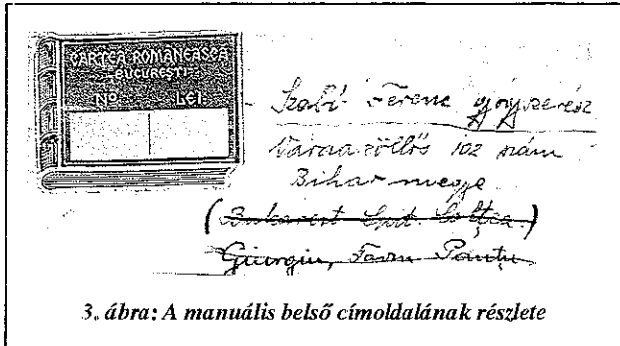 CARTEA ROMANEASCA
BUCUREȘTI
NO LEI
Szabó Ferenc gyógyszerész
102 szám
Bihar megye
(Bukarest Spit. Colțea.)
Giurgiu, Farm
3. ábra: A manuális belső címoldalának részlete